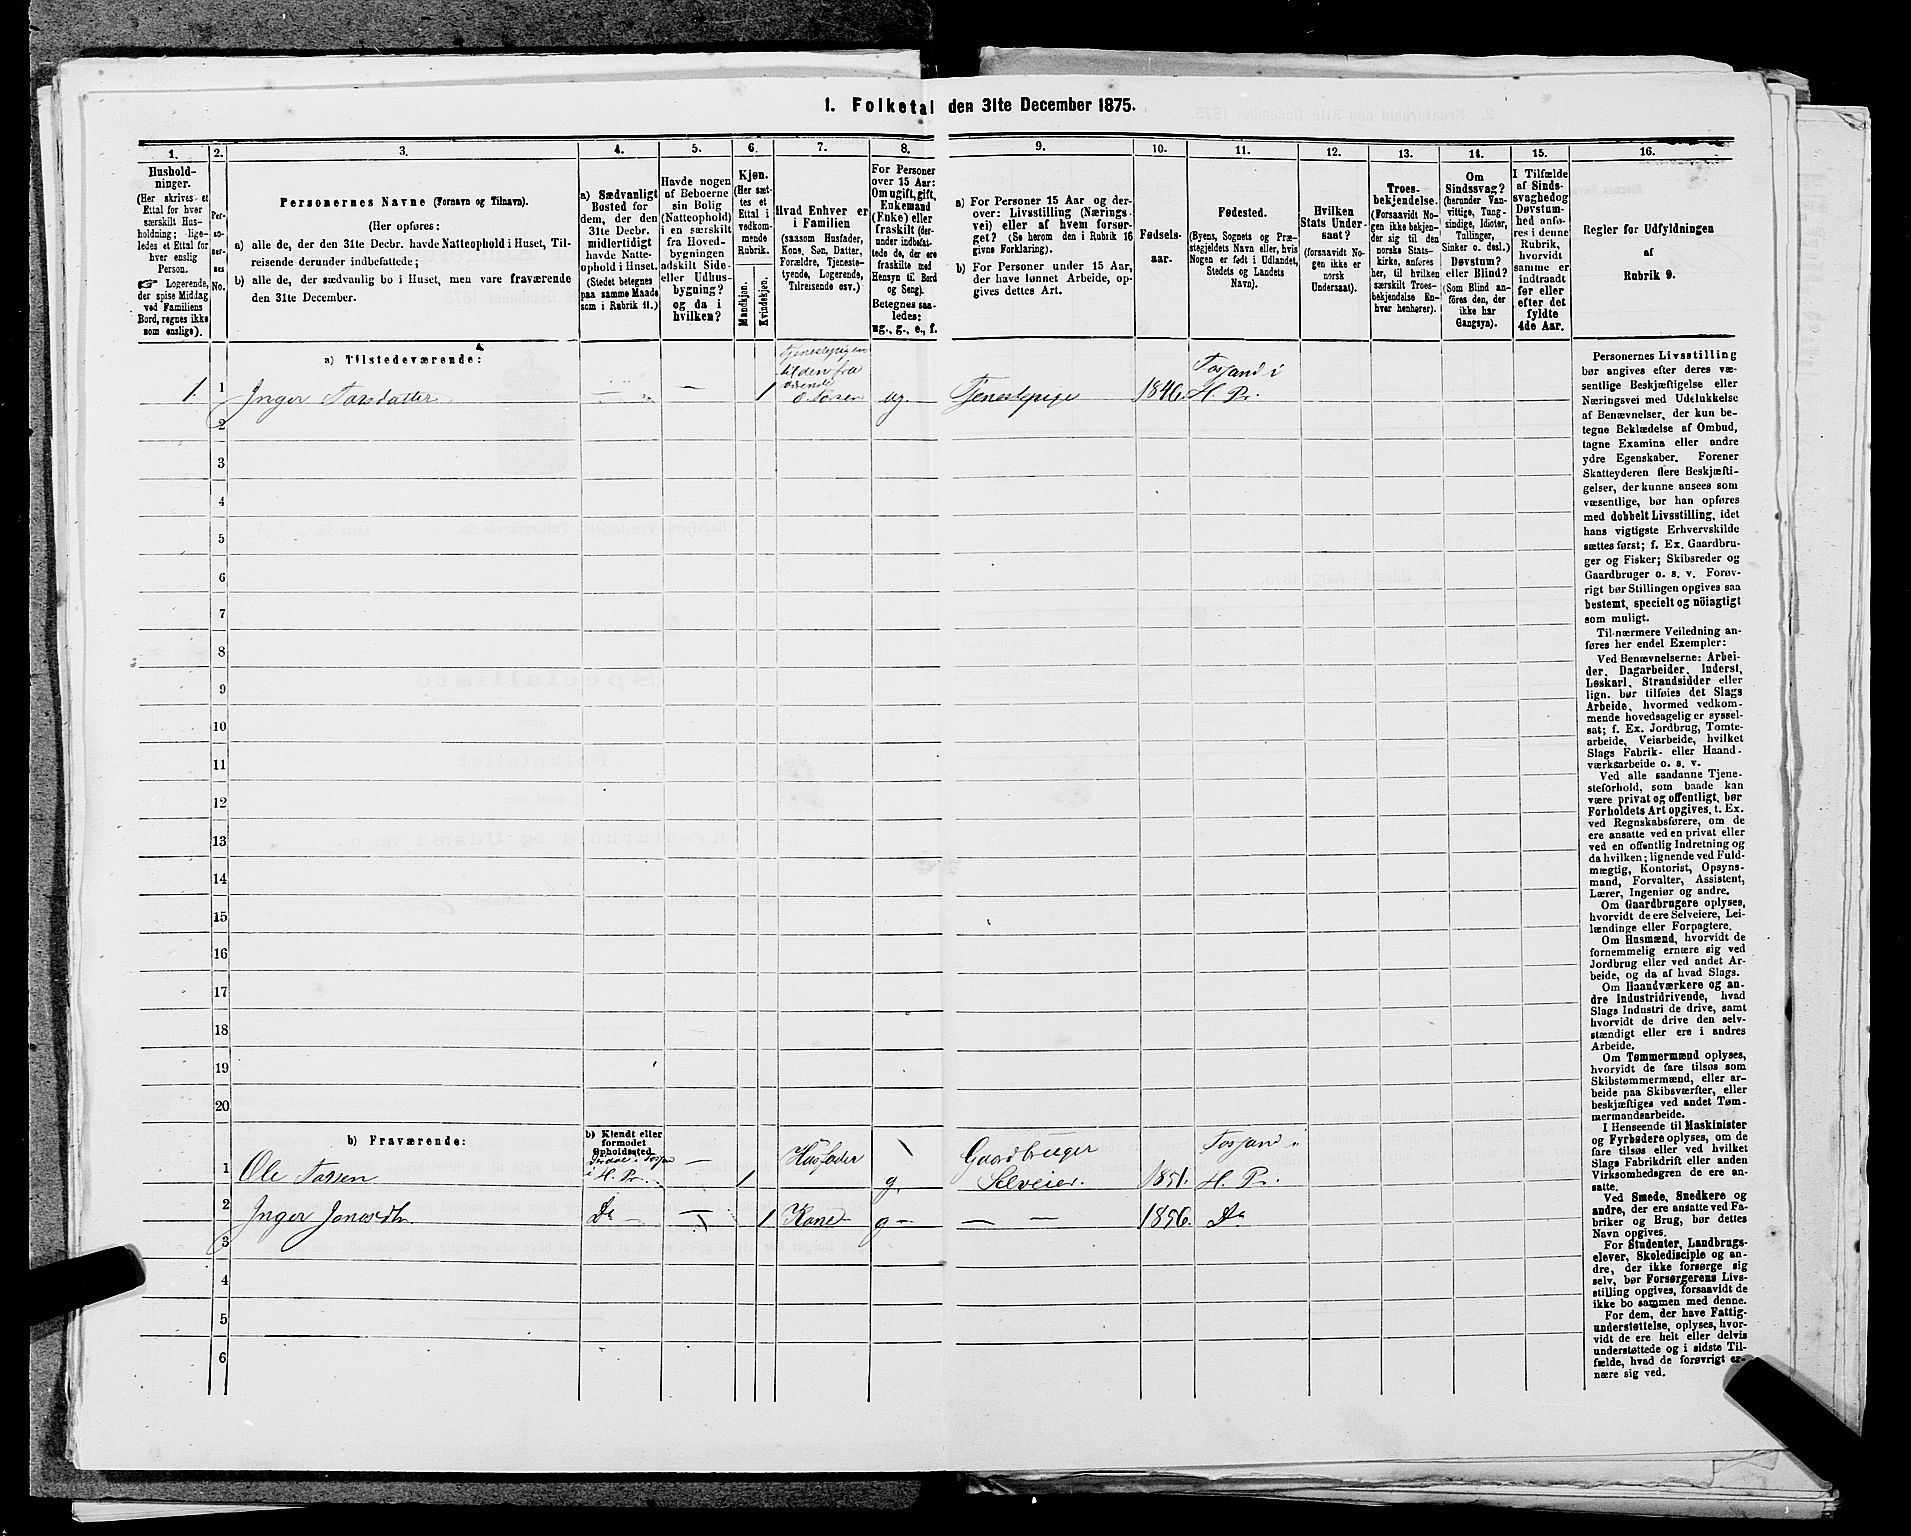 1. Folketal den 31te December 1875.
1.
Hushold-
ninger.
(Her skrives et
Ettal for hver
særskilt Hus-
holdning; lige-
ledes et Ettal for
hver enslig
Person.
Logerende,
der spise Middag
ved Familiens
Bord, regnes ikke
som enslige).
2.
Per-
so-
ner-
nes
No.
3.
Personernes Navne (Fornavn og Tilnavn).
(Her opføres:
a) alle de, der den 31te Decbr. havde Natteophold i Huset, Til-
reisende derunder indbefattede;
b) alle de, der sædvanlig bo i Huset, men vare fraværende
den 31te December.
4.
a) Sædvanligt
Bosted for
dem, der den
31te Decbr.
midlertidigt
havde Natte-
ophold i Huset.
(Stedet betegnes
paa samme Maade
som i Rubrik 11.)
5.
Havde nogen
af Beboerne
sin Bolig
(Natteophold)
i en særskilt
fra Hoved-
bygningen
adskilt Side-
eller Udhus-
bygning?
og da i
hvilken?
6.
Kjøn.
(Her sæt-
tes et
Ettal i
vedkom-
mende
Rubrik.
Mandkjøn.
Kvindekjøn.
7.
Hvad Enhver er
i Familien
(saasom Husfader,
Kone, Søn, Datter,
Forældre, Tjeneste-
tyende, Logerende,
Tilreisende osv.)
8.
For Personer
over 15 Aar:
Om ugift, gift,
Enkemand
(Enke) eller
fraskilt (der-
under indbefat-
tede de, der ere
fraskilte med
Hensyn til Bord
og Seng).
Betegnes saa-
ledes:
ug., g., e., f.
9.
a) For Personer 15 Aar og der-
over: Livsstilling (Nærings
vei) eller af hvem forsør-
get? (Se herom den i Rubrik 16
givne Forklaring).
b) For Personer under 15 Aar,
der have lønnet Arbeide, op-
gives dettes Art.
10.
Fødsels-
aar.
11.
Fødested.
(Byens, Sognets og Præ-
stegjeldets Navn eller, hvis
Nogen er født i Udlandet,
Stedets og Landets
Navn).
12.
Hvilken
Stats Under-
saat?
(forsaavidt No-
gen ikke er
norsk
Undersaat).
13.
Troes-
bekjendelse.
(Forsaavidt No-
gen ikke bekjen-
der sig til den
norske Stats-
kirke, anføres
her, til hvilken
særskilt Troes-
bekjendelse En-
hver henhører).
14.
Om
Sindssvag?
(herunder Van-
vittige, Tung-
sindige, Idioter,
Tullinger,
Sinker o. desl.)
Døvstum?
eller Blind?
(Som Blind an-
føres den, der
ikke har
Gangsyn).
15.
I Tilfælde
af Sinds-
svaghed og
Døvstum-
hed anfø-
res i denne
Rubrik,
hvorvidt
samme er
indtraadt
før eller
efter det
fyldte
4de Aar.
16.
Regler for Udfyldningen
af
Rubrik 9.
a) Tilstedeværende:
1. 1 Inger Tarsdatter — — 1 Tjenestepigen til den fra ug. Tjenestepige 1846. Fosand i H. Pr.
2
3
4
5
6
7
8
9
10
11
12
13
14
15
16
17
18
19
20
b) Fraværende:
b) Kjendt eller
formodet
Opholdssted.
1 Ole Tarsen i H. Pr. — 1 Husfader g. Gaardbruger Selveier. 1851. H. Pr.
2 Inger Jonasdtr. Do — — 1 Kone g — — — 1856. Do
3
4
5
6
Personernes Livsstilling
bør angives efter deres væ-
sentlige Beskjæftigelse eller
Næringsvei med Udelukkelse
af Benævnelser, der kun be-
tegne Beklædelse af Ombud,
tagne Examina eller andre
ydre Egenskaber. Forener
Skatteyderen flere Beskjæfti-
gelser, der kunne ansees som
væsentlige, bør han opføres
med dobbelt Livsstilling, idet
hans vigtigste Erhvervskilde
sættes først; f. Ex. Gaardbru-
ger og Fisker; Skibsreder og
Gaardbruger o. s. v. Forøv-
rigt bør Stillingen opgives saa
bestemt, specielt og nöiagtigt
som muligt.
Til nærmere Veiledning an-
føres her endel Exempler:
Ved Benævnelserne: Arbei-
der, Dagarbeider, Inderst,
Løskarl, Strandsidder eller
lign. bør tilføies det Slags
Arbeide, hvormed vedkom-
mende hovedsagelig er syssel-
sat; f. Ex. Jordbrug, Tomte-
arbeide, Veiarbeide, hvilket
Slags Fabrik- eller Haand-
værksarbeide o. s. v.
Ved alle saadanne Tjene-
steforhold, som baade kan
være privat og offentligt, bør
Forholdets Art opgives, t. Ex.
ved Regnskabsførere, om de
ere ansatte ved en privat eller
ved en offentlig Indretning og
da hvilken; lignende ved Fuld-
mægtig, Kontorist, Opsyns-
mand, Forvalter, Assistent,
Lærer, Ingeniør og andre.
Om Gaardbrugere oplyses,
hvorvidt de ere Selveiere, Lei-
lændinge eller Forpagtere.
Om Husmænd, hvorvidt de
fornemmelig ernære sig ved
Jordbrug eller ved andet Ar-
beide, og da af hvad Slags.
Om Haandværkere og an-
dre Industridrivende, hvad
Slags Industri de drive, samt
hvorvidt de drive den selv-
stændigt eller ere i andres
Arbeide.
Om Tømmermænd oplyses,
hvorvidt de fare tilsøs som
Skibstømmermænd, eller ar-
beide paa Skibsværfter, eller
beskjæftiges ved andet Tøm-
mermandsarbeide.
I Henseende til Maskinister
og Fyrbødere oplyses, om de
fare tilsøs eller ved hvilket
Slags Fabrikdrift eller anden
Virksomhedsgren de ere an-
satte.
Ved Smede, Snedkere og
andre, der ere ansatte ved Fa-
briker og Brug, bør dettes
Navn opgives.
For Studenter, Landbrugs-
elever, Skoledisciple og an-
dre, der ikke forsørge sig
selv, bør Forsørgerens Livs-
stilling opgives, forsaavidt de
ikke bo sammen med denne.
For dem, der have Fattig-
understøttelse, oplyses, hvor-
vidt de ere helt eller delvis
understøttede og i sidste Til-
fælde, hvad de forøvrigt er-
nære sig ved.